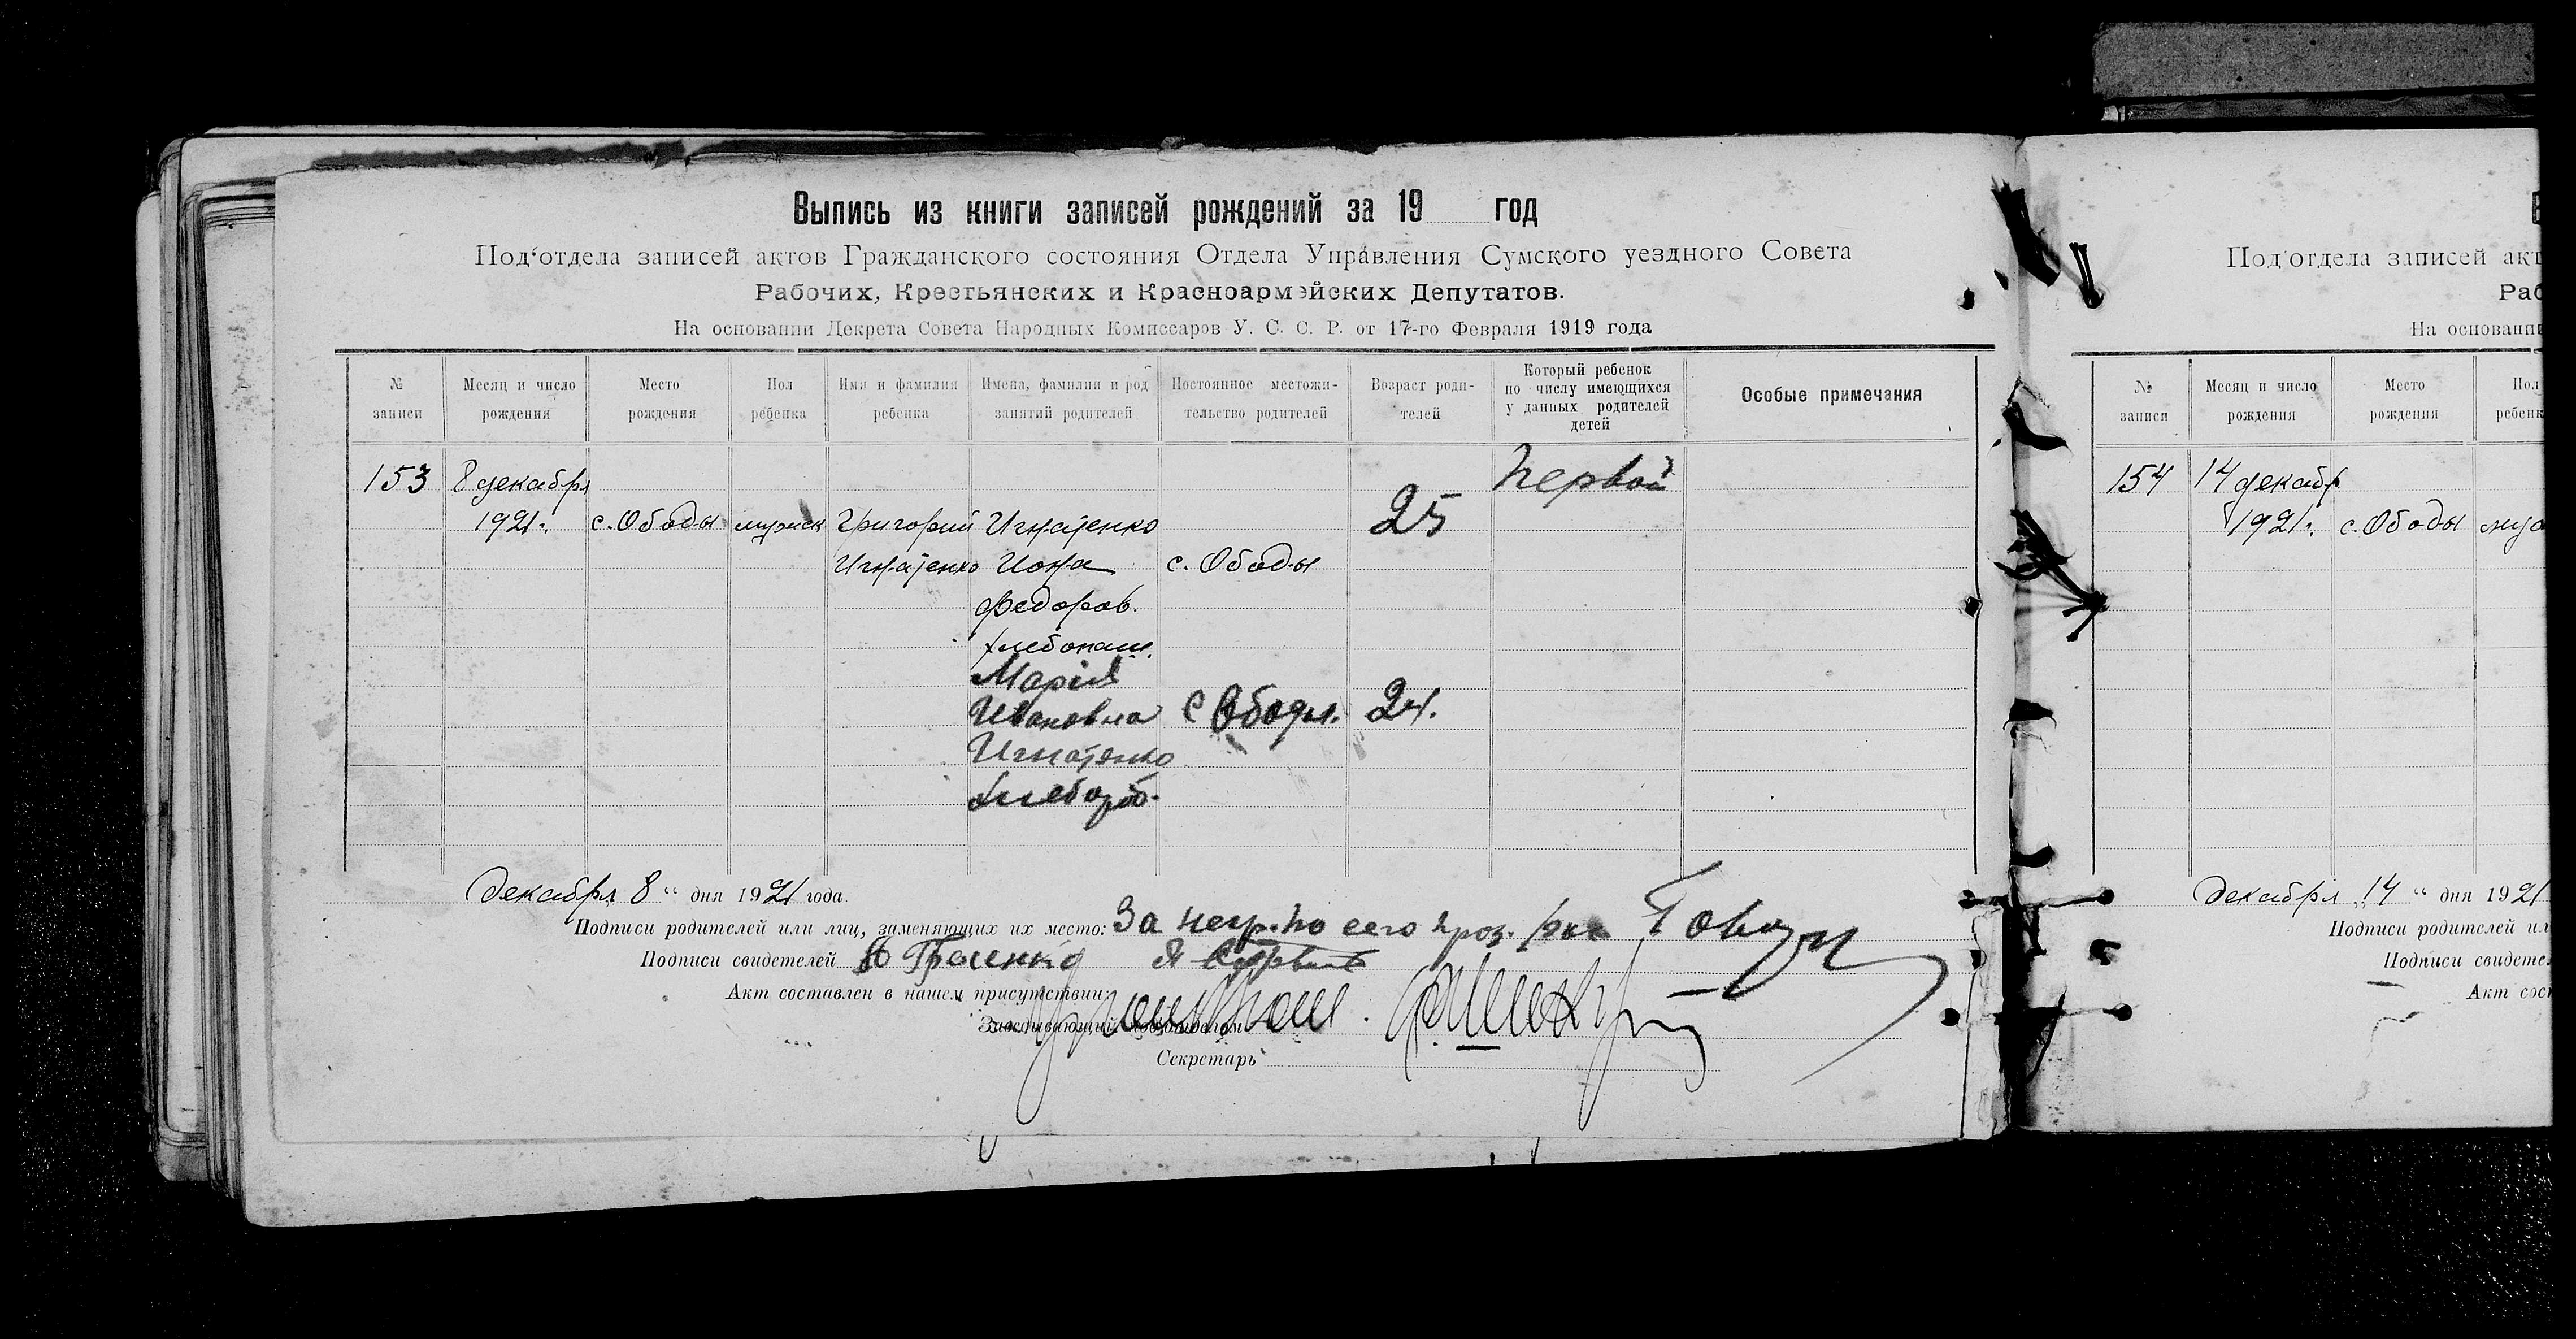 Выпись из книги записей рождений за 19 год
Под'отдела записей актов Гражданского состояния Отдела Управления Сумского уездного Совета
Рабочих, Крестьянских и Красноармейских Депутатов.
На основании Декрета Совета Народных Комиссаров У. С. С. Р. от 17-го Февраля 1919 года
№ записи
Месяц и число рождения
Место рождения
Пол ребенка
Имя и фамилия ребенка
Имена, фамилии и род занятий родителей
Постоянное местожительство родителей
Возраст родителей
Который ребенок по числу имеющихся у данных родителей детей
Особые примечания
153 8 декабря Первой
1921г. с. Ободы мужск Григорий Игнатенко 25
Игнатенко Иона с. Ободы
Федоров.
хлебопаш.
Марія
Ивановна с Ободы. 24.
Игнатенко
хлебороб.
Декабря 8 " дня 1921 года.
Подписи родителей или лиц, заменяющих их место: За негр. по его
Подписи свидетелей
Акт составлен в нашем присутствии:
Заведывающий подотделом
Секретарь
Под'отдела записей акт
Раб
На основании
№ записи
Месяц и число рождения
Место рождения
Пол ребенк
154 14 декабр
1921г. с. Ободы муж
Декабря 14 " дня 1921
Подписи родителей ил
Подписи свидете
Акт сос